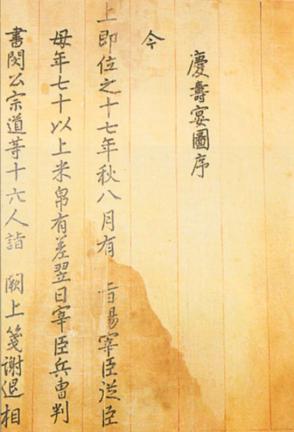 慶壽宴圖序
今
上即位之十七年秋八月有 旨賜宰臣從臣
母年七十以上米帛有差翌日宰臣兵曹判
書閔公宗道等十六人詣 闕上箋謝退相